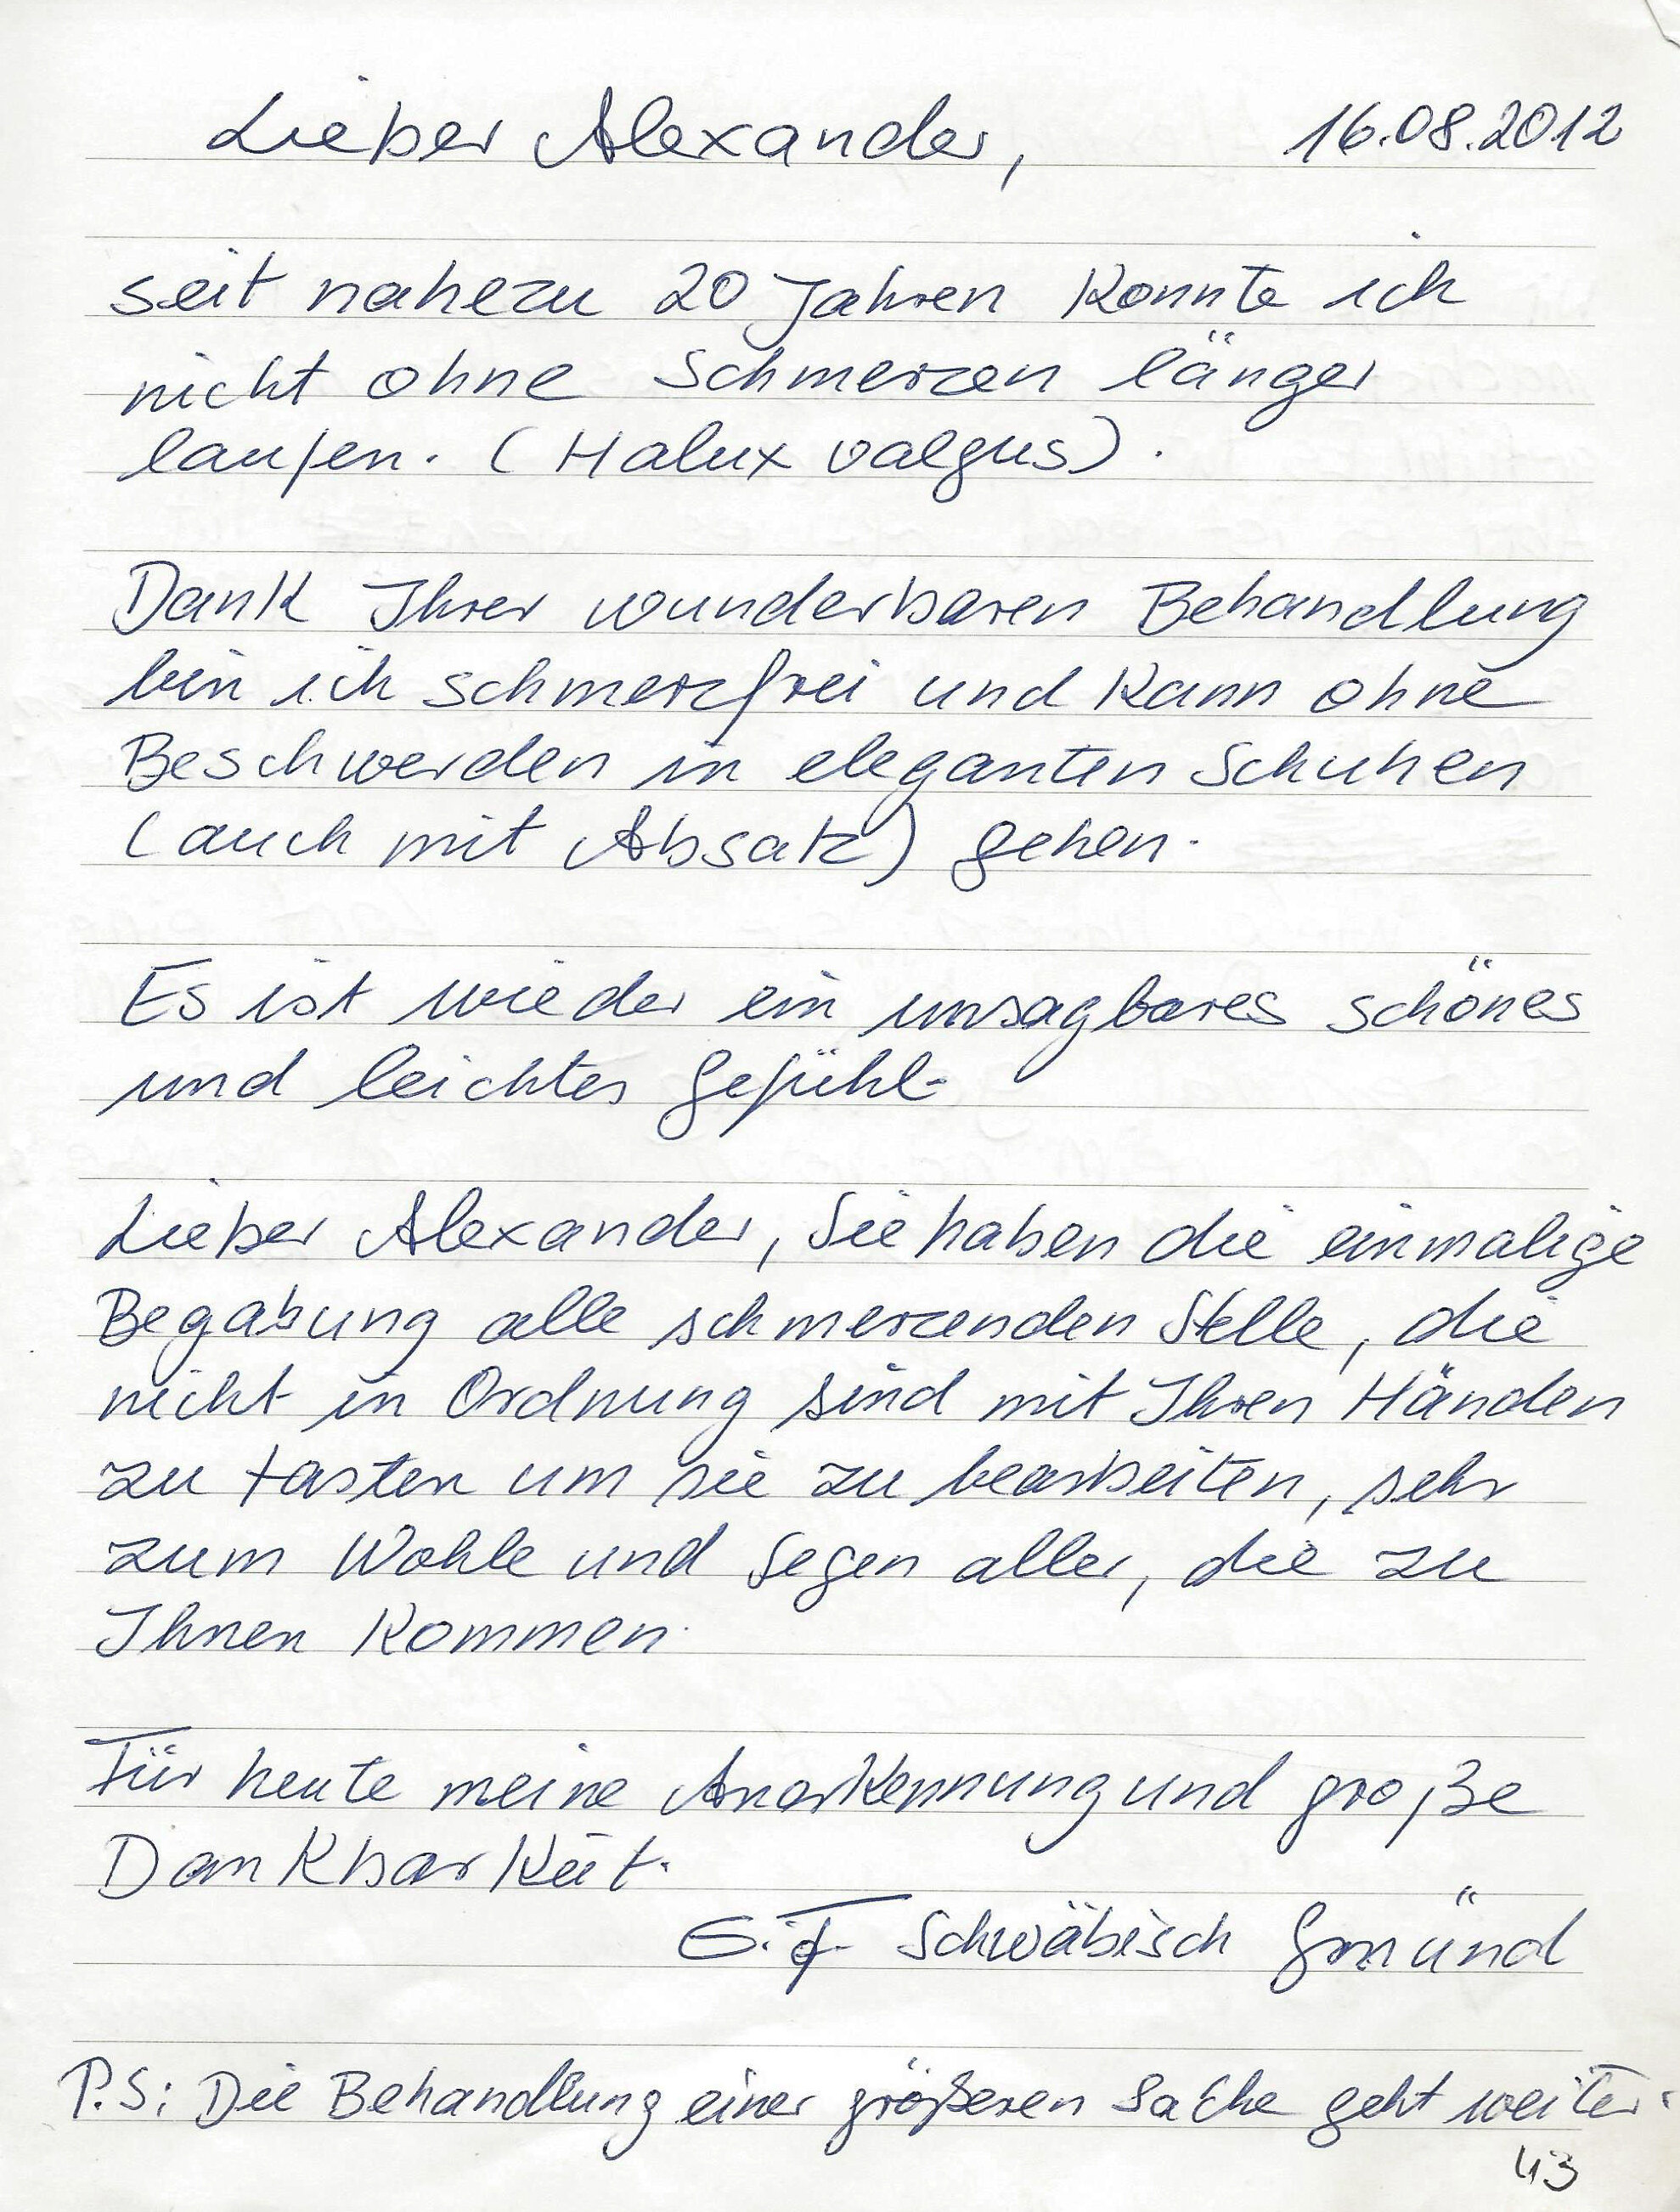 Lieber Alexander, 16.08.2012
seit nahezu 20 Jahren konnte ich
nicht ohne Schmerzen länger
laufen. (Halux valgus).
Dank Ihrer wunderbaren Behandlung
bin ich schmerzfrei und kann ohne
Beschwerden in eleganten Schuhen
(auch mit Absatz) gehen.
Es ist wieder ein unsagbares schönes
und leichtes Gefühl.
Lieber Alexander, Sie haben die einmalige
Begabung alle schmerzenden Stelle, die
nicht in Ordnung sind mit Ihren Händen
zu tasten um sie zu bearbeiten, sehr
zum Wohle und Segen aller, die zu
Ihnen kommen.
Für heute meine Anerkennung und große
Dankbarkeit.
G.F. Schwäbisch Gmünd
P.S: Die Behandlung einer größeren Sache geht weiter.
43